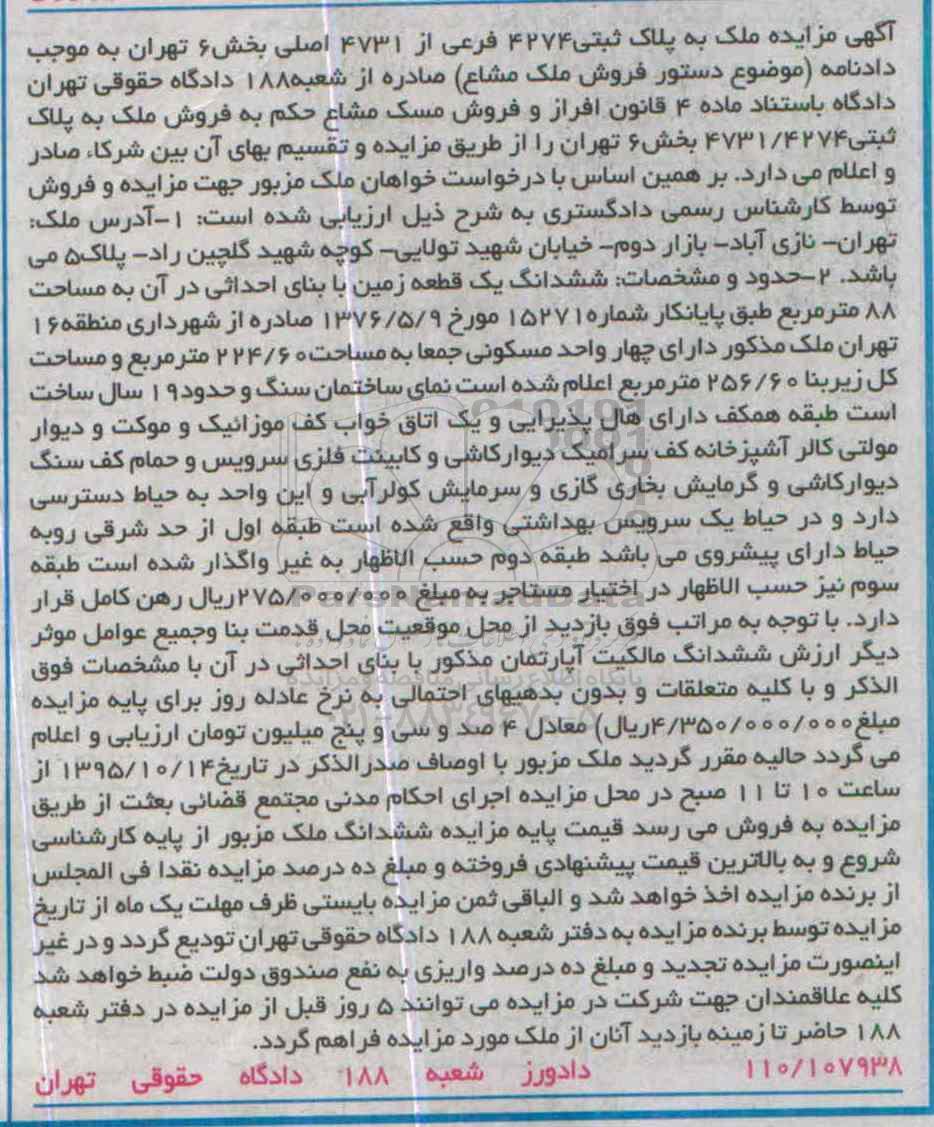 آگهی مزایده ملک به پلاک ثبتی۴۲۷۴ فرعی از ۴۷۳۱ اصلی بخش۶ تهران به موجب
دادنامه (موضوع دستور فروش ملک مشاع) صادره از شعبه۱۸۸ دادگاه حقوقی تهران
دادگاه باستناد ماده ۴ قانون افراز و فروش مسک مشاع حکم به فروش ملک به پلاک
ثبتی۴۷۳۱/۴۲۷۴ بخش۶ تهران را از طریق مزایده و تقسیم بهای آن بین شرکاء صادر
و اعلام می دارد. بر همین اساس با درخواست خواهان ملک مزبور جهت مزایده و فروش
توسط کارشناس رسمی دادگستری به شرح ذیل ارزیابی شده است: ۱-آدرس ملک:
تهران- نازی آباد- بازار دوم- خیابان شهید تولایی- کوچه شهید گلچین راد- پلاک۵ می
باشد. ۲-حدود و مشخصات: ششدانگ یک قطعه زمین با بنای احداثی در آن به مساحت
۸۸ مترمربع طبق پایانکار شماره۱۵۲۷۱ مورخ ۱۳۷۶/۵/۹ صادره از شهرداری منطقه۱۶
تهران ملک مذکور دارای چهار واحد مسکونی جمعا به مساحت۲۲۴/۶۰ مترمربع و مساحت
کل زیربنا ۲۵۶/۶۰ مترمربع اعلام شده است نمای ساختمان سنگ و حدود۱۹ سال ساخت
است طبقه همکف دارای هال پذیرایی و یک اتاق خواب کف موزائیک و موکت و دیوار
مولتی کالر آشپزخانه کف سرامیک دیوارکاشی و کابینت فلزی سرویس و حمام کف سنگ
دیوارکاشی و گرمایش بخاری گازی و سرمایش کولرآبی و این واحد به حیاط دسترسی
دارد و در حیاط یک سرویس بهداشتی واقع شده است طبقه اول از حد شرقی روبه
حیاط دارای پیشروی می باشد طبقه دوم حسب الاظهار به غیر واگذار شده است طبقه
سوم نیز حسب الاظهار در اختیار مستاجر به مبلغ ۲۷۵/۰۰۰/۰۰۰ریال رهن کامل قرار
دارد. با توجه به مراتب فوق بازدید از محل موقعیت محل قدمت بنا وجمیع عوامل موثر
دیگر ارزش ششدانگ مالکیت آپارتمان مذکور با بنای احداثی در آن با مشخصات فوق
الذکر و با کلیه متعلقات و بدون بدهیهای احتمالی به نرخ عادله روز برای پایه مزایده
مبلغ۴/۳۵۰/۰۰۰/۰۰۰ریال) معادل ۴ صد و سی و پنج میلیون تومان ارزیابی و اعلام
می گردد حالیه مقرر گردید ملک مزبور با اوصاف صدرالذکر در تاریخ۱۳۹۵/۱۰/۱۴ از
ساعت ۱۰ تا ۱۱ صبح در محل مزایده اجرای احکام مدنی مجتمع قضائی بعثت از طریق
مزایده به فروش می رسد قیمت پایه مزایده ششدانگ ملک مزبور از پایه کارشناسی
شروع و به بالاترین قیمت پیشنهادی فروخته و مبلغ ده درصد مزایده نقدا فی المجلس
از برنده مزایده اخذ خواهد شد و الباقی ثمن مزایده بایستی ظرف مهلت یک ماه از تاریخ
مزایده توسط برنده مزایده به دفتر شعبه ۱۸۸ دادگاه حقوقی تهران تودیع گردد و در غیر
اینصورت مزایده تجدید و مبلغ ده درصد واریزی به نفع صندوق دولت ضبط خواهد شد
کلیه علاقمندان جهت شرکت در مزایده می توانند ۵ روز قبل از مزایده در دفتر شعبه
۱۸۸ حاضر تا زمینه بازدید آنان از ملک مورد مزایده فراهم گردد.
۱۱۰/۱۰۷۹۳۸ دادورز شعبه ۱۸۸ دادگاه حقوقی تهران